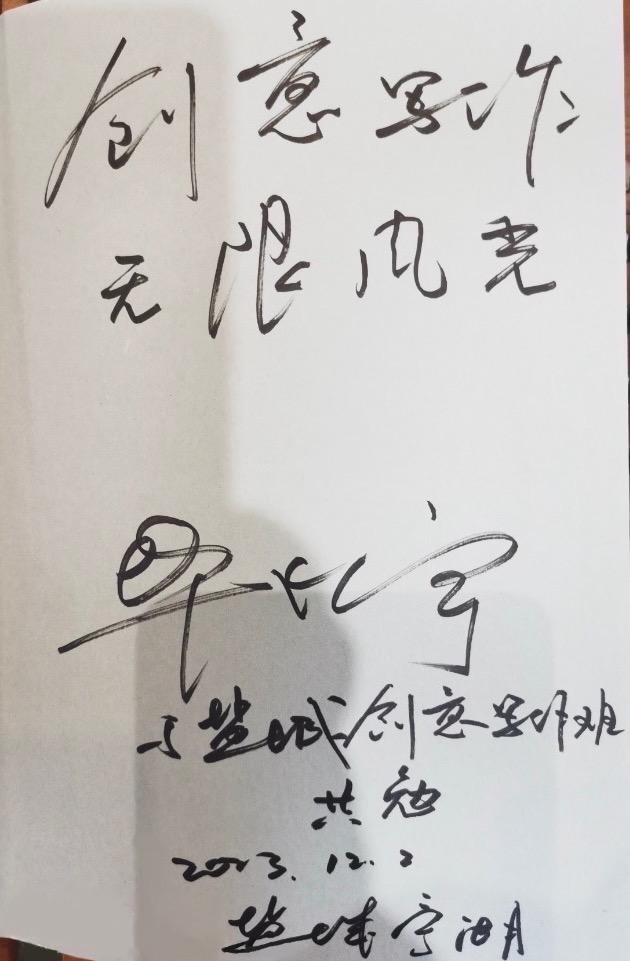 创意写作
无限风光
毕飞宇
与盐城创意写作班
共勉
2023.12.2
盐城亭湖